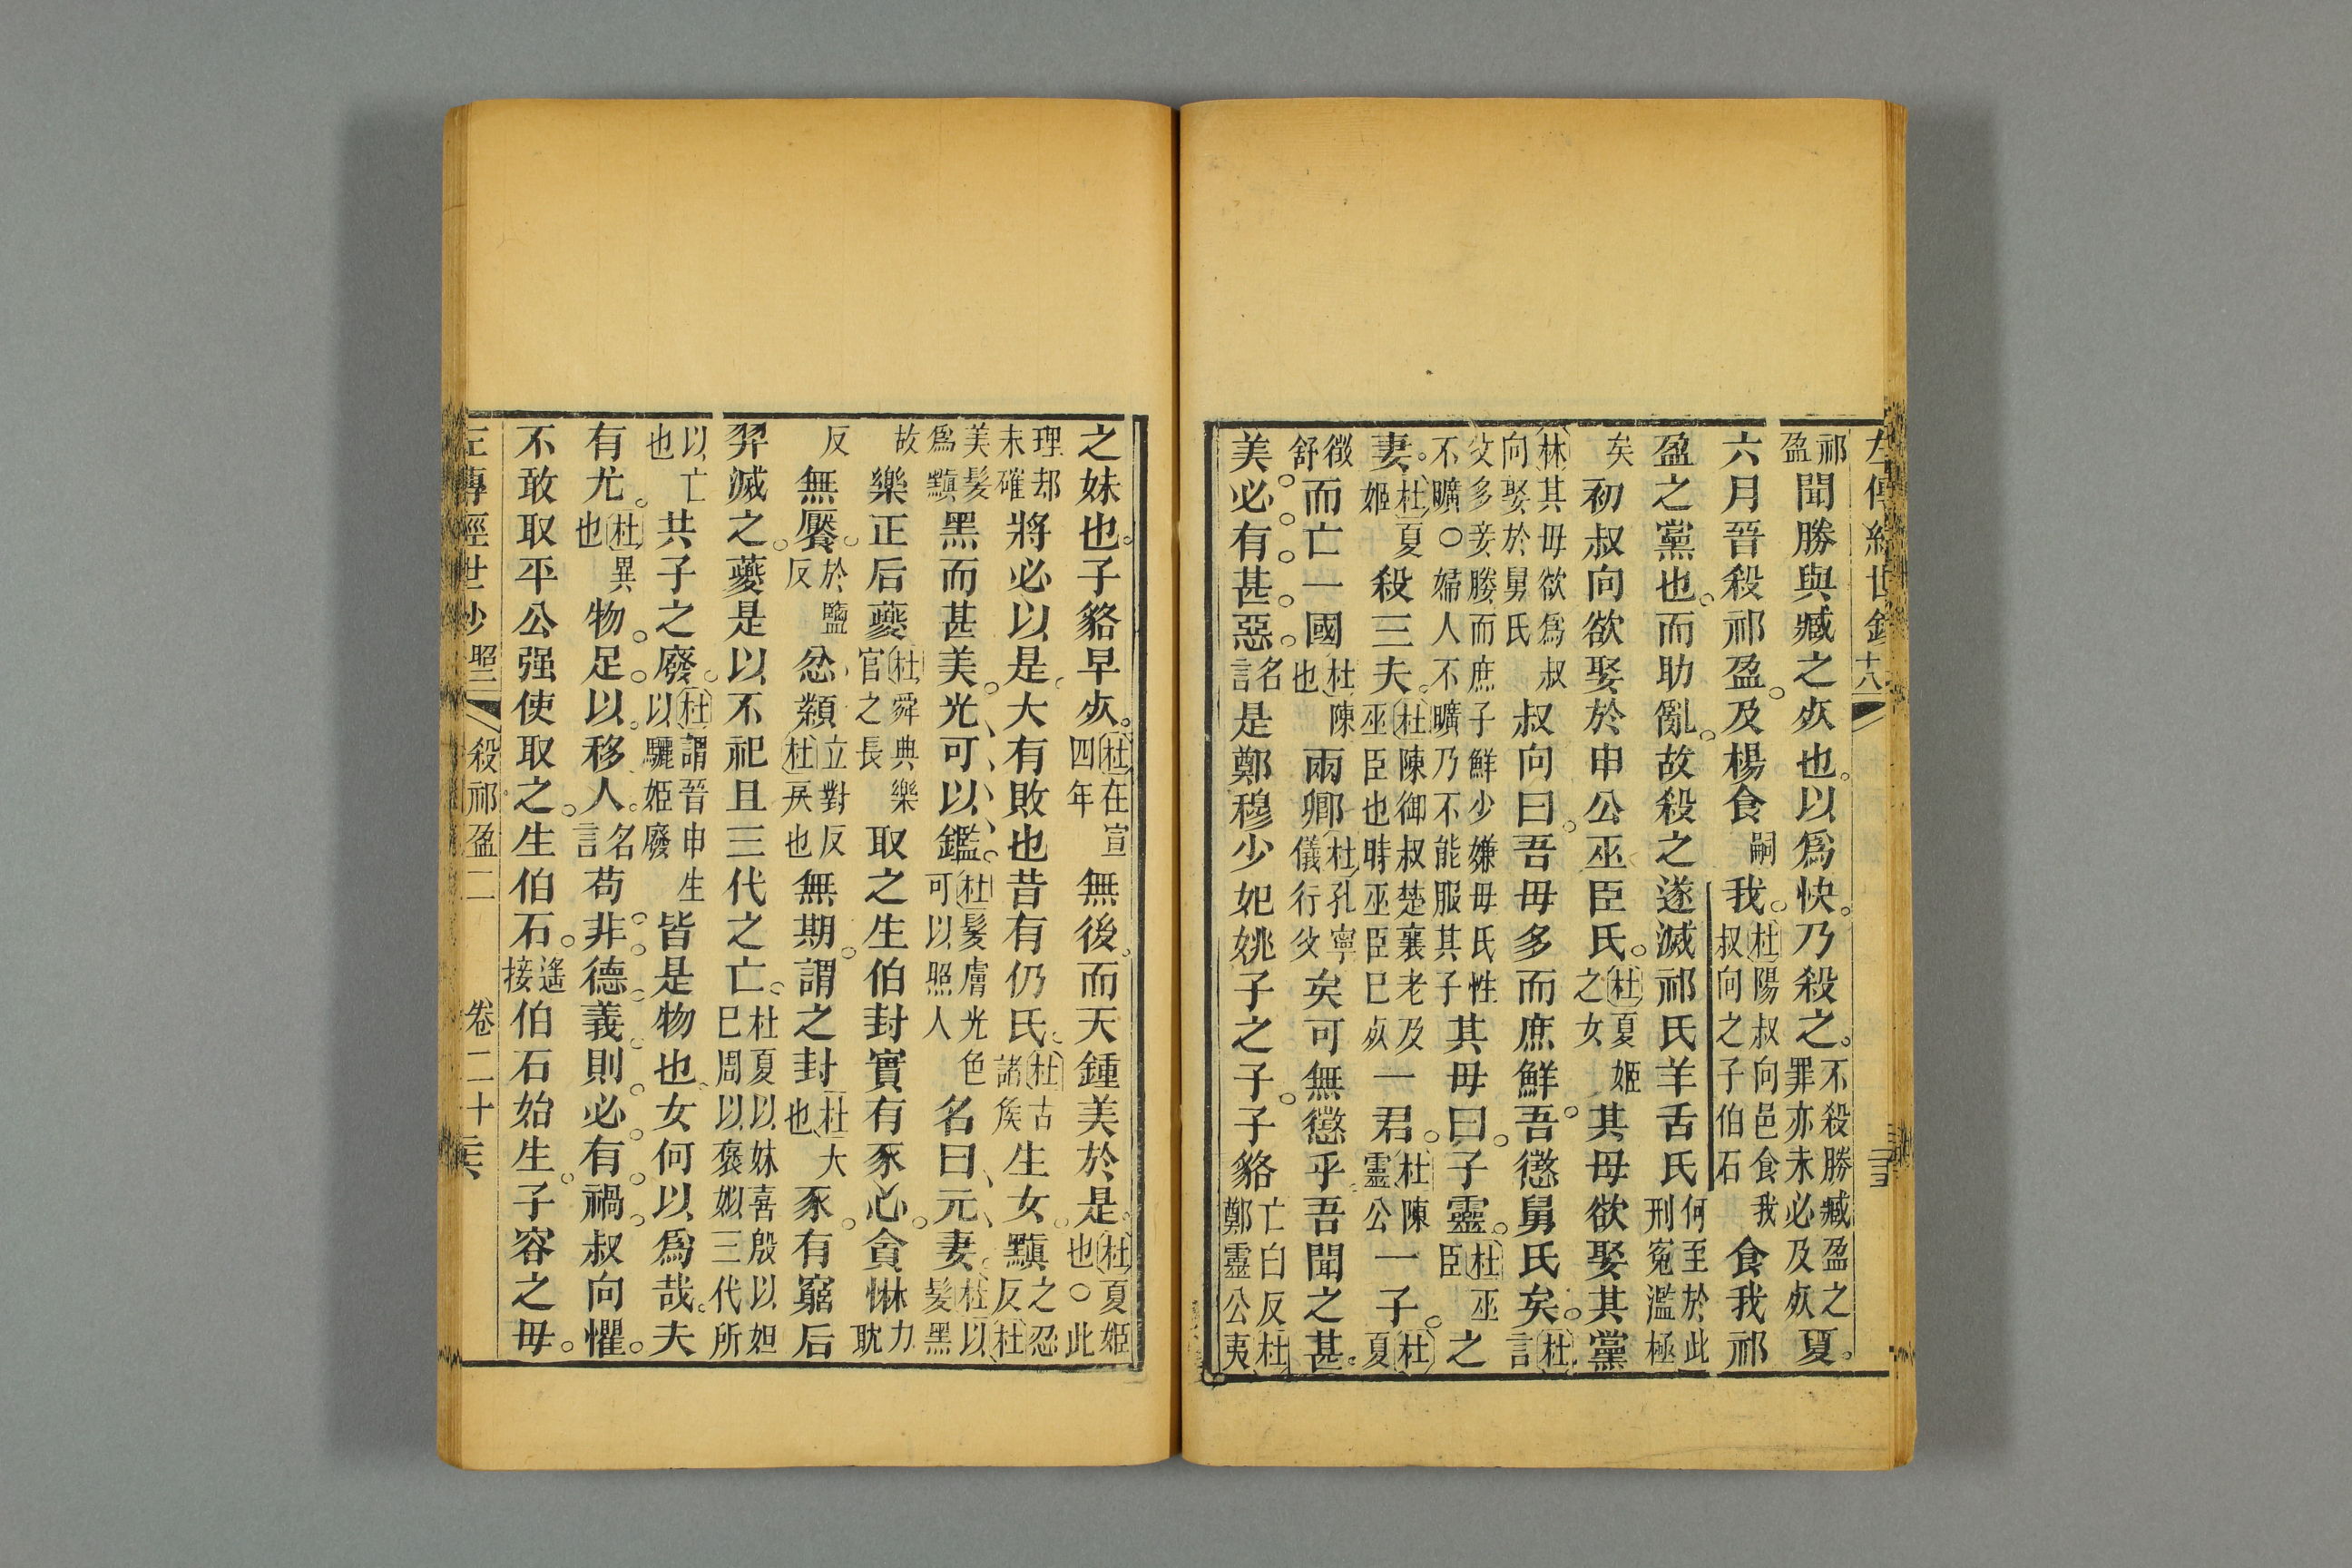 左傳經世鈔十八
祁盈聞勝與臧之𣦸也以爲快乃殺之不殺勝臧盈之罪亦未必及𣦸夏
六月晉殺祁盈及楊食嗣我杜陽叔向邑食我叔向之子伯石食我祁
盈之黨也而助亂故殺之遂滅祁氏羊舌氏何至於此刑冤濫極
矣初叔向欲娶於申公巫臣氏杜夏姬之女其母欲娶其黨
林其母欲爲叔向娶於舅氏叔向曰吾母多而庶鮮吾懲舅氏矣杜言
父多妾媵而庶子鮮少嫌母氏性不曠○婦人不曠乃不能服其子其母曰子靈杜巫臣之
妻杜夏姬殺三夫杜陳御叔楚襄老及巫臣也時巫臣已𣦸一君杜陳靈公一子杜夏
徵舒而亡一國杜陳也兩卿杜孔寧儀行父矣可無懲乎吾聞之甚
美必有甚惡名言是鄭穆少妃姚子之子子貉亡白反杜鄭靈公夷
之妹也子貉早𣦸杜在宣四年無後而天鍾美於是杜夏姬也○此
理却未確將必以是大有敗也昔有仍氏杜古諸侯生女黰之忍反杜
美髮爲黰黑而甚美光可以鑑杜髮膚光色可以照人名曰元妻杜以髮黑
故樂正后夔杜舜典樂官之長取之生伯封實有豕心貪惏力耽
反無饜於鹽反忿纇立對反杜戾也無期謂之封杜大也豕有窮后
羿滅之夔是以不祀且三代之亡杜夏以妺喜殷以妲已周以褒姒三代所
以亡也共子之廢杜謂晉申生以驪姬廢皆是物也女何以爲哉夫
有尤杜異也物足以移人名言苟非德義則必有禍叔向懼
不敢取平公强使取之生伯石遙接伯石始生子容之母
左傳經世鈔 昭二 殺祁盈二 卷二十六